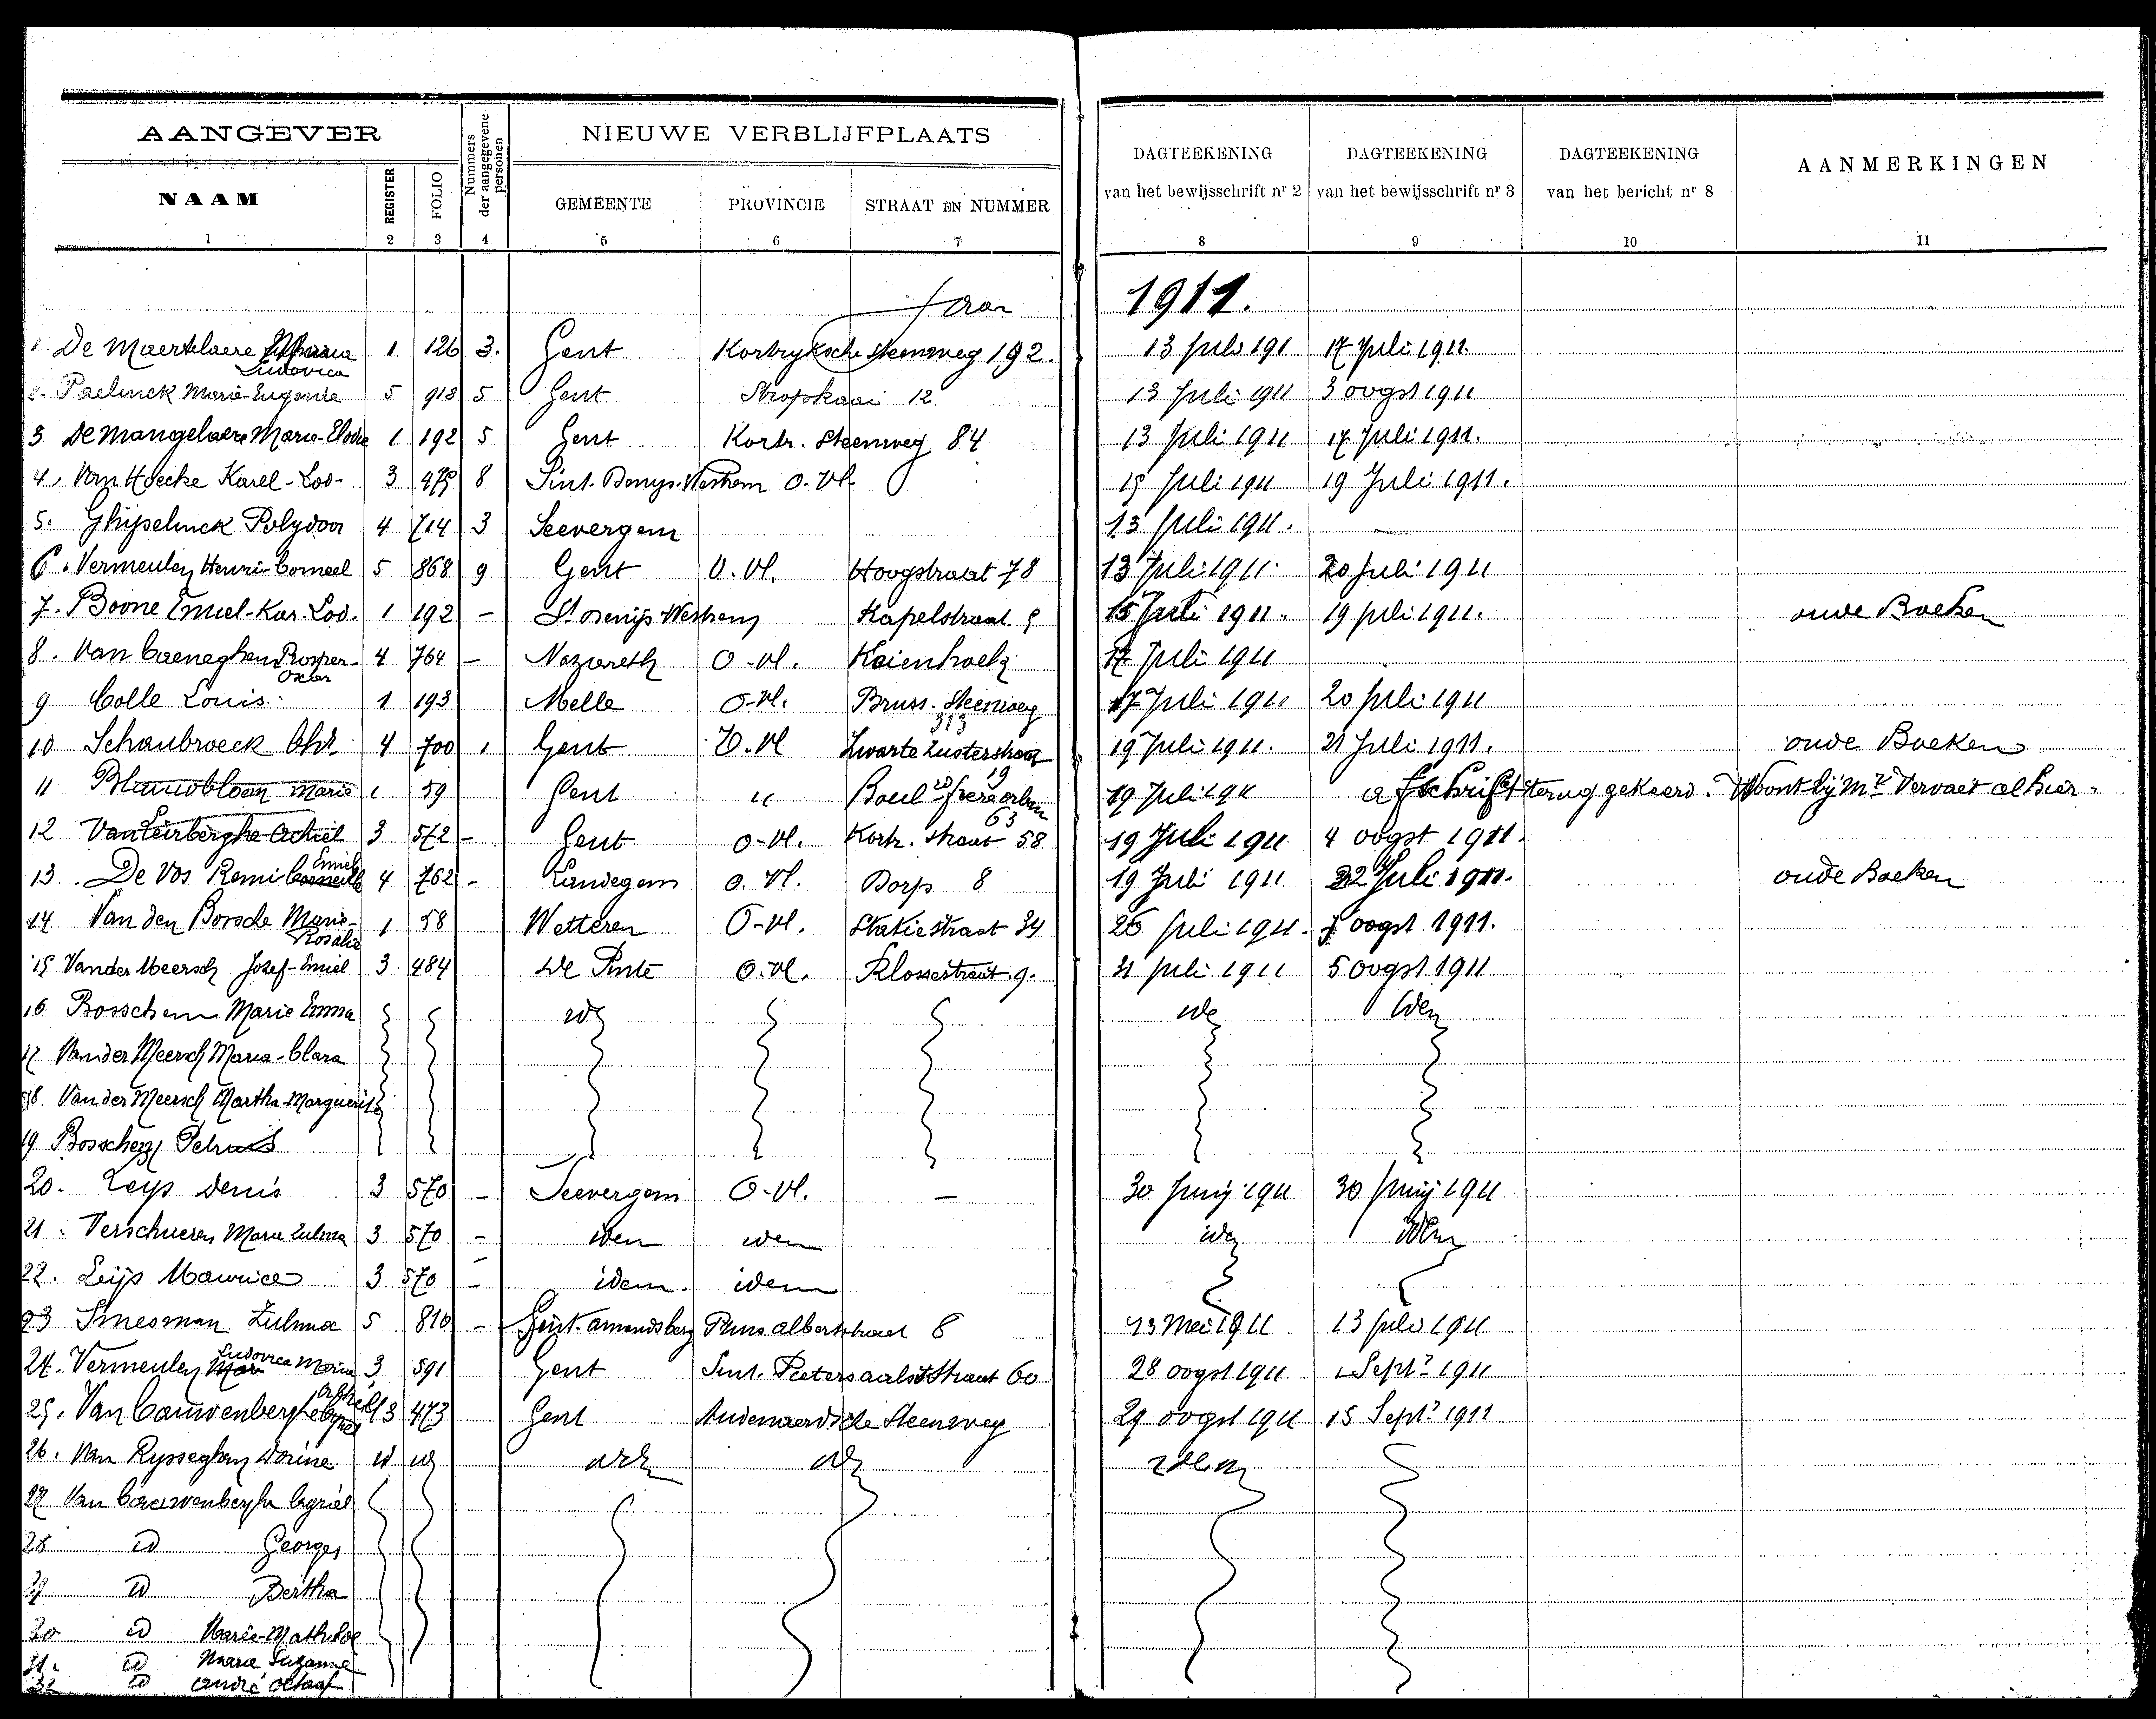 AANGEVER
Nummers der aangegevene personen
NIEUWE VERBLIJFPLAATS
DAGTEEKENING van het bewijsschrift nr 2
DAGTEEKENING van het bewijsschrift nr 3
DAGTEEKENING van het bericht nr 8
AANMERKINGEN
NAAM REGISTER FOLIO GEMEENTE PROVINCIE STRAAT EN NUMMER
1 2 3 4 5 6 7 8 9 10 11
Jaar 1911.
1. De Maertelaere Maria Ludovica 1 126 3. Gent Kortryksche Steenweg 192. 13 Juli 191 17 Juli 1911.
2. Paelinck Marie-Eugenie 5 918 5 Gent Stropkaai 12 13 Juli 1911 3 oogst 1911
3. De Mangelaere Maria-Elodie 1 192 5 Gent Kortr. Steenweg 84 13 Juli 1911 17 Juli 1911.
4. Van Hoecke Karel-Lod- 3 475 8 Sint. Denys-Westrem O. Vl. 15 Juli 1911 19 Juli 1911.
5. Ghyselinck Polydoor 4 714 3 Seevergem 13 Juli 1911. -
6. Vermeulen Henri-Corneel 5 868 9 Gent O. Vl. Hoogstraat 78 13 Juli 1911. 20 Juli 1911
7. Boone Emiel-Kar. Lod. 1 192 - St Denijs-Westrem Kapelstraat 9 15 Juli 1911. 19 Juli 1911. oude Boeken
8. Van Caeneghem Prosper- Oscar 4 764 - Nazareth O-Vl. 17 Juli 1911
9 Colle Louis 1 193 Melle O-Vl. Bruss. Steenweg 313 17 Juli 1911 20 Juli 1911
10 Schaubroeck 4 700 1 Gent O. Vl Zwarte Zusterstraat 19 19 Juli 1911. 21 Juli 1911. oude Boeken
11 Blauwbloem Marie 1 59 Gent " Boul rd frere orban 63 19 Juli 1911 afschrift terug gekeerd. Woont bij Mr Vervaet alhier.
12 Van Leirberghe Achiel 3 572 - Gent O-Vl. Kortr. Straat 58 19 Juli 1911 4 oogst 1911.
13. De Vos Remi Emiel 4 762 - Landegem O. Vl. Dorp 8 19 Juli 1911 22 Juli 1911. oude Boeken
14. Van den Bossche Marie-Rosalie 1 58 Wetteren O-Vl. Statiestraat 34 26 Juli 1911. 7 oogst 1911.
15 Vander Meersch Jozef-Emiel 3 484 De Pinte O. Vl. Klossestraat 9. 31 Juli 1911 5 oogst 1911
16 Bosschem Marie Emma id ide iden
17 Vander Meersch Maria-Clara
18. Van der Meersch Martha-Marguerite
19 Bosschem Petrus
20. Leys Denis 3 570 - Seevergem O-Vl. - 30 Junij 1911 30 Junij 1911
21. Verschueren Marie Zulma 3 570 - idem idem id idem
22. Leijs Maurice 3 570 - idem. idem
23 Smesman Zulma 5 810 - Sint. Amandsberg Prins albertstraat 8 13 Mei 1911 13 Juli 1911
24. Vermeulen Ludovica Maria 3 591 Gent Sint. Pieters aalststraat 60 28 oogst 1911 1 Sept? 1911
25. Van Cauwenberghe 3 473 Gent Audenaerdsche Steenweg 29 oogst 1911 15 Sept? 1911
26. Van Rysseghem Dorine id id id id idem
27 Van Cauwenberghe Cyriel
28 id Georges
29 id Bertha
30 id Marie-Mathilde
31. id Marie Suzanne
32 id André Octaaf